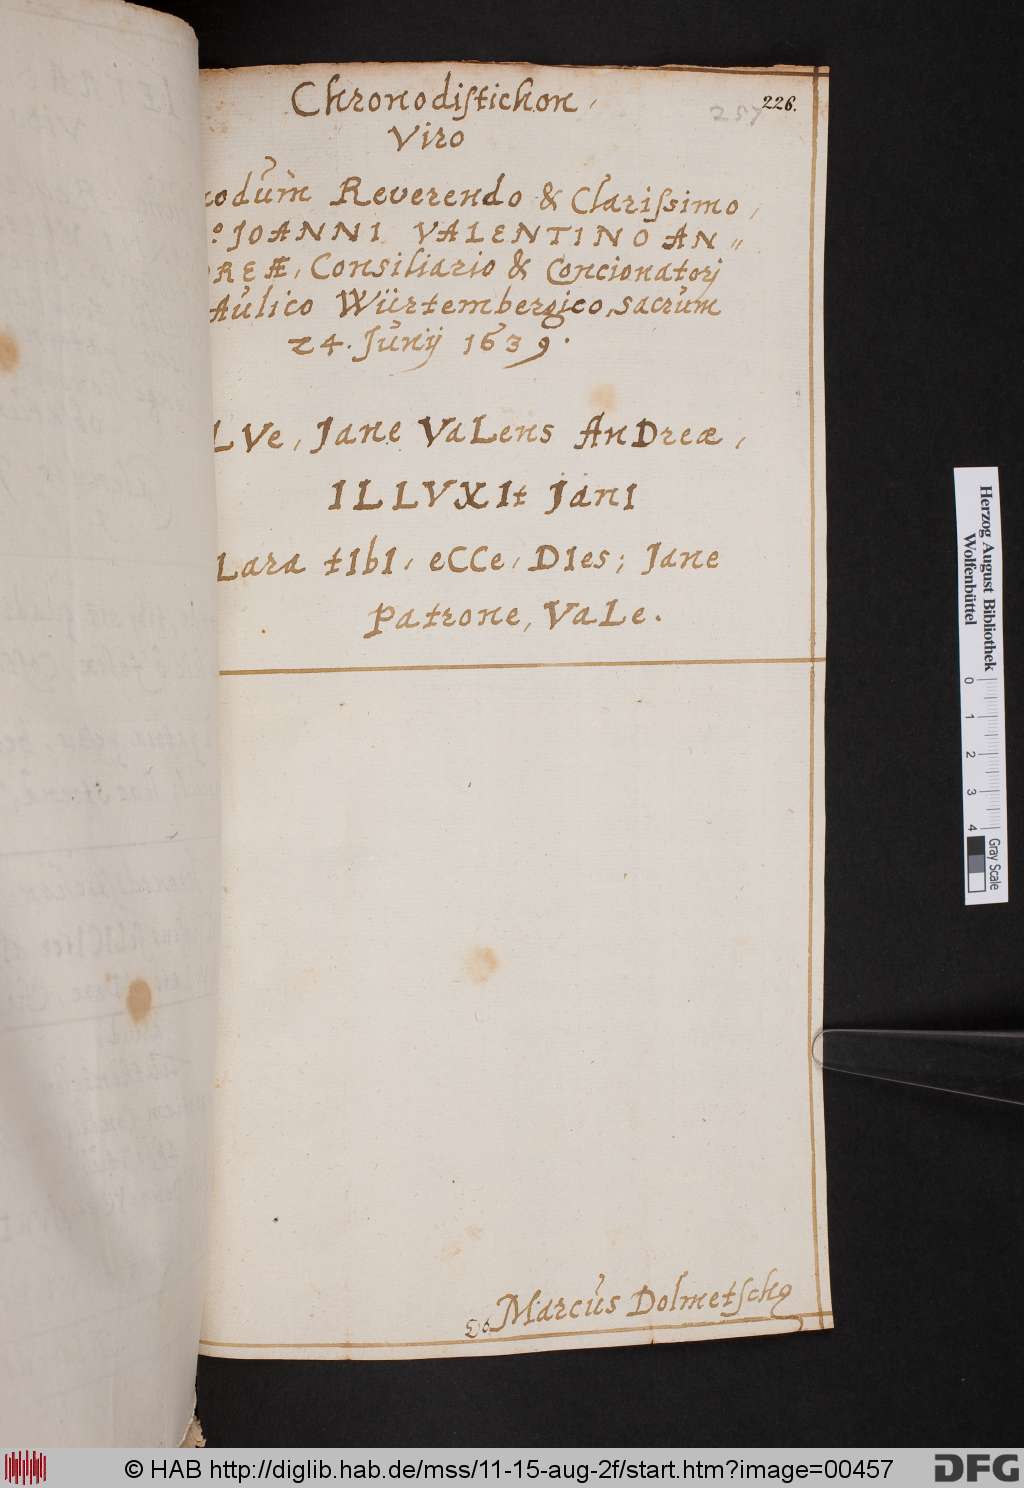 Chronodiſtichon,
226.
257
Viro
odum̀ Reverendo & Clariſsimo,
º JOANNI VALENTINO AN„
REÆ, Consiliario & Concionatorj
Aulico Würtembergico, sacrum
24. Junÿ 1639.
LVe, Jane VaLens AnDreæ,
ILLVXIt JanI
Lara tIbI, eCCe, DIes; Jane
Patrone, VaLe.
Marcus Dolmetſchꝰ
Herzog August Bibliothek
Wolfenbüttel
0 1 2 3 4
Gray Scale
© HAB http://diglib.hab.de/mss/11-15-aug-2f/start.htm?image=00457
DFG